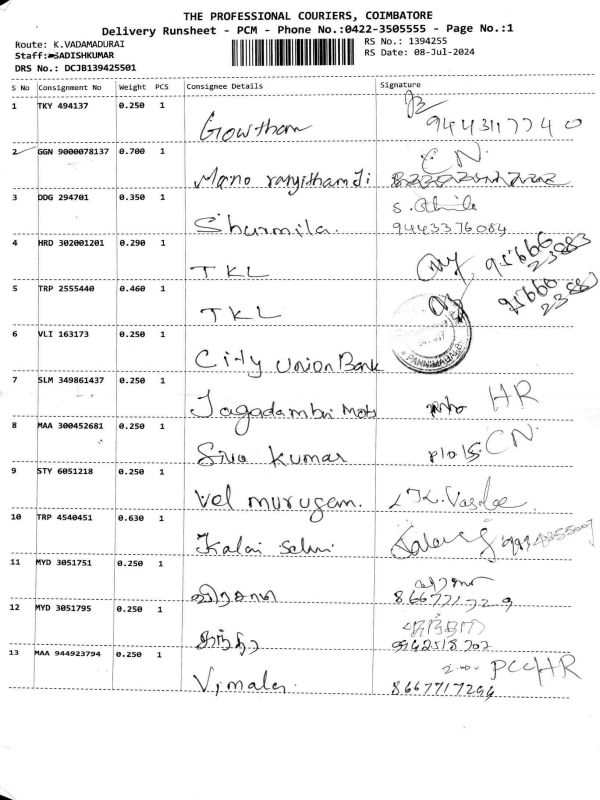 THE PROFESSIONAL COURIERS, COIMBATORE
Delivery Runsheet - PCM - Phone No.:0422-3505555 - Page No.:1
Route: K.VADAMADURAI
RS No.: 1394255
Staff: SADISHKUMAR
RS Date: 08-Jul-2024
DRS No.: DCJB139425501
S No Consignment No Weight PCS Consignee Details Signature
1 TKY 494137 0.250 1 Gowtham 9443117740
2 GGN 9000078137 0.700 1 Mano ranjitham Ji CN.
3 DDG 294701 0.350 1 Sharmila. 9443376084
4 HRD 302001201 0.290 1 TKL 95666 23883
5 TRP 2555440 0.460 1 TKL 95666 23883
6 VLI 163173 0.250 1 City Union Bank
7 SLM 349861437 0.250 1 Jagadambri Mots HR
8 MAA 300452681 0.250 1 Siva Kumar CN.
9 STY 6051218 0.250 1 Vel murugam.
10 TRP 4540451 0.630 1 Kalai Selvi
11 MYD 3051751 0.250 1 8667717729
12 MYD 3051795 0.250 1
13 MAA 944923794 0.250 1 Vimala. PCCHR
8667717294